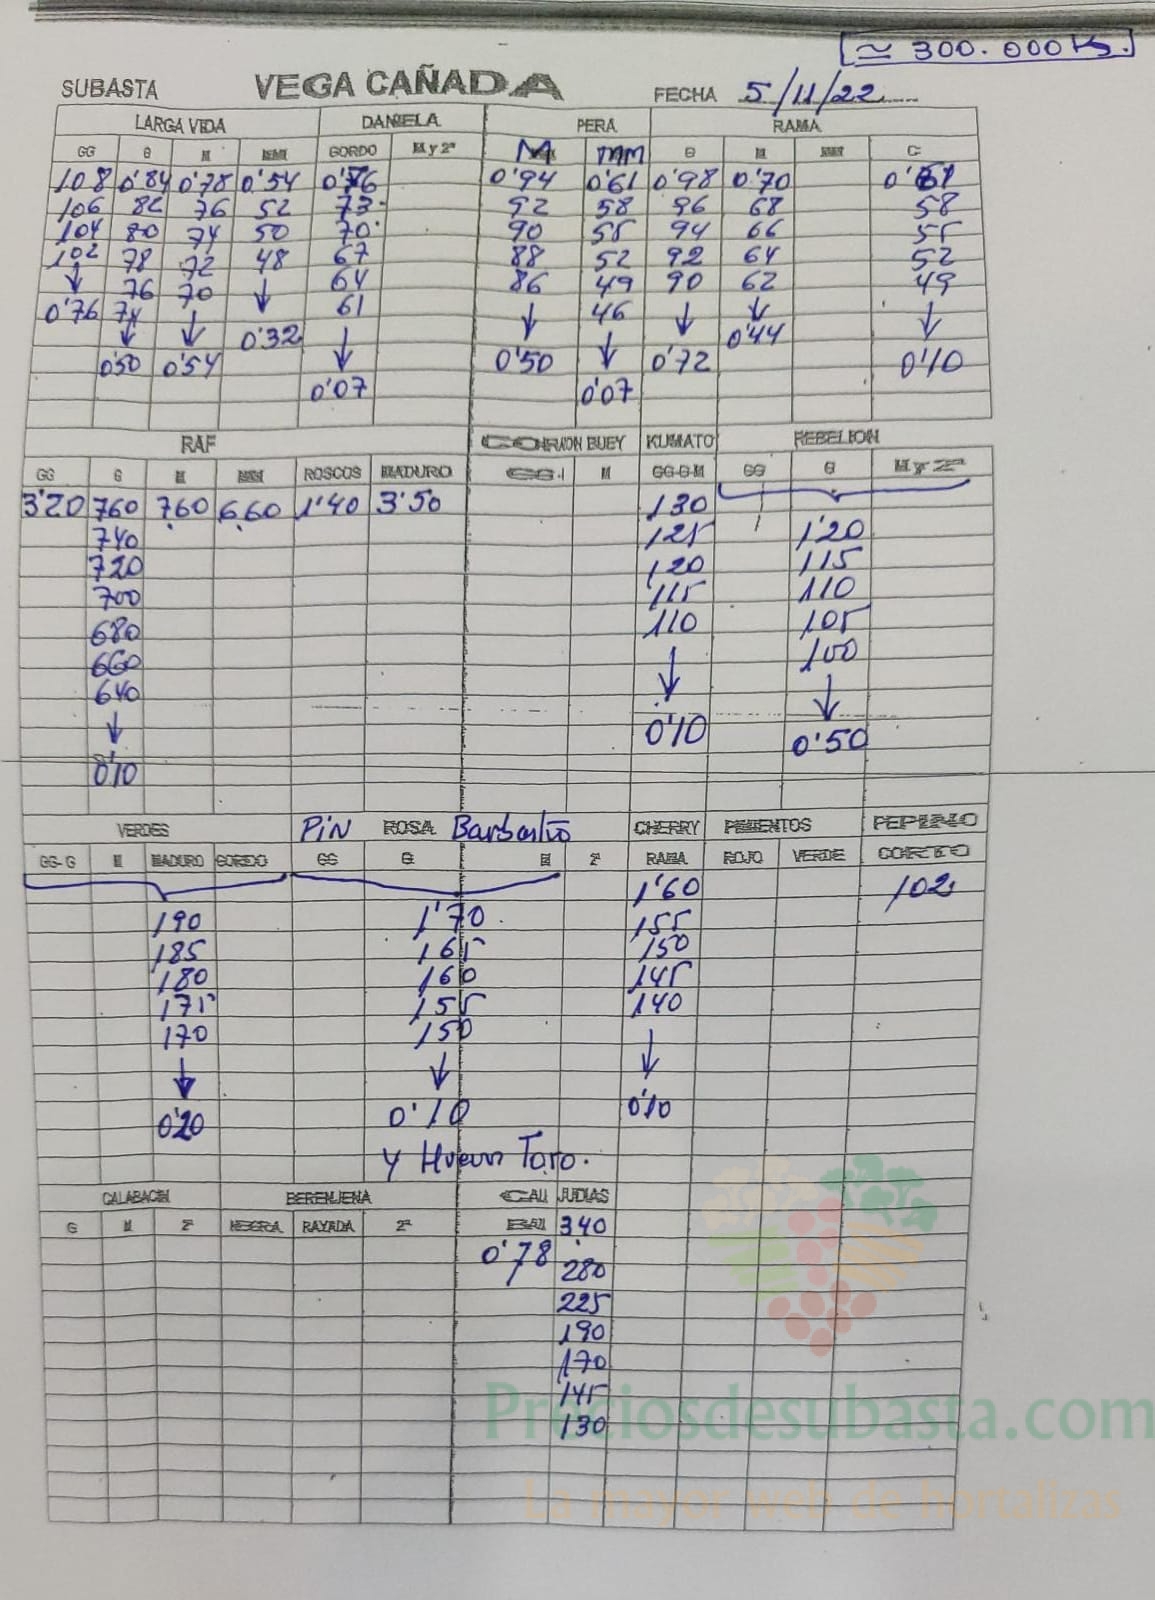 ≃ 300.000 Ks.
SUBASTA VEGA CAÑADA FECHA 5/11/22
LARGA VIDA DANIELA PERA RAMA
GG G M MM GORDO M y 2ª M MM G M MM C
108 0'84 0'78 0'54 0'76 0'94 0'61 0'98 0'70 0'61
106 82 76 52 73 92 58 96 68 58
104 80 74 50 70 90 55 94 66 55
102 78 72 48 67 88 52 92 64 52
↓ 76 70 ↓ 64 86 49 90 62 49
0'76 74 ↓ 0'32 61 ↓ 46 ↓ ↓ ↓
↓ ↓ 0'44
0'50 0'54 ↓ 0'50 ↓ 0'72 0'10
0'07 0'07
RAF CORAZON BUEY KUMATO REBELION
GG G M MM ROSCOS MADURO GG M GG-G-M GG G M y 2ª
3'20 760 760 660 1'40 3'50 130
740 125 1'20
720 120 115
700 115 110
680 110 105
660 100
640 ↓ ↓
↓ 0'10 0'50
0'10
VERDES PIN ROSA Barbastro CHERRY PIMIENTOS PEPINO
GG-G M MADURO GORDO GG G M 2ª RAMA ROJO VERDE CORTO
1'60 102
190 1'70 155
185 165 150
180 160 145
175 155 140
170 150
↓ ↓ ↓
0'20 0'10 0'10
y Huevo Toro.
CALABACIN BERENJENA CALA JUDIAS
G M 2ª NEGRA RAYADA 2ª BAI 340
0'78 280
225
190
170
145
130
Preciosdesubasta.com
La mayor web de hortalizas